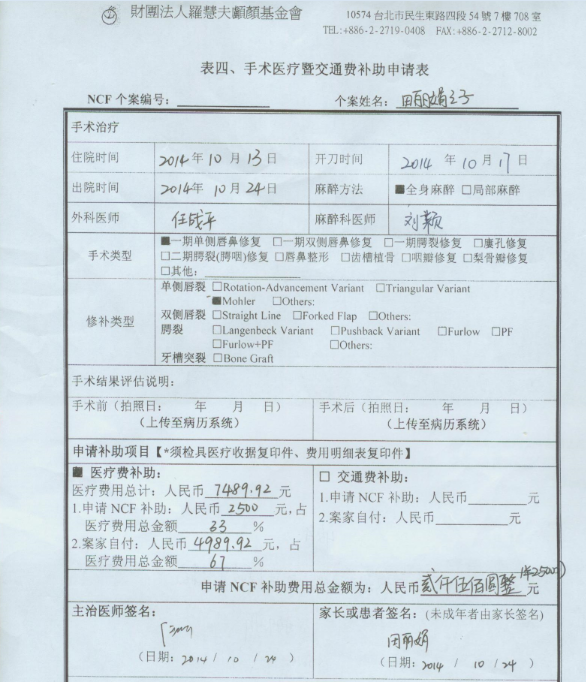 財團法人羅慧夫顱顏基金會
10574 台北市民生東路四段 54 號 7 樓 708 室
TEL:+886-2-2719-0408 FAX:+886-2-2712-8002
表四、手术医疗暨交通费补助申请表
NCF 个案编号: 个案姓名: 田丽娟之子
手术治疗
住院时间 2014 年 10 月 13 日 开刀时间 2014 年 10 月 17 日
出院时间 2014 年 10 月 24 日 麻醉方法 ■全身麻醉 □局部麻醉
外科医师 任战平 麻醉科医师 刘颖
手术类型 ■一期单侧唇鼻修复 □一期双侧唇鼻修复 □一期腭裂修复 □廔孔修复
□二期腭裂(腭咽)修复 □唇鼻整形 □齿槽植骨 □咽瓣修复 □梨骨瓣修复
□其他:
修补类型 单侧唇裂 □Rotation-Advancement Variant □Triangular Variant
■Mohler □Others:
双侧唇裂 □Straight Line □Forked Flap □Others:
腭裂 □Langenbeck Variant □Pushback Variant □Furlow □PF
□Furlow+PF □Others:
牙槽突裂 □Bone Graft
手术结果评估说明:
手术前（拍照日: 年 月 日） 手术后（拍照日: 年 月 日）
(上传至病历系统) (上传至病历系统)
申请补助项目【*须检具医疗收据复印件、费用明细表复印件】
■ 医疗费补助: □ 交通费补助:
医疗费用总计: 人民币 7489.92 元 1.申请 NCF 补助: 人民币 元
1.申请 NCF 补助: 人民币 2500 元, 占 2.案家自付: 人民币 元
医疗费用总金额 33 %
2.案家自付: 人民币 4989.92 元, 占
医疗费用总金额 67 %
申请 NCF 补助费用总金额为: 人民币 贰仟伍佰圆整 (¥2500) 元
主治医师签名: 家长或患者签名: (未成年者由家长签名)
田丽娟
(日期: 2014 / 10 / 24 ) (日期: 2014 / 10 / 24 )